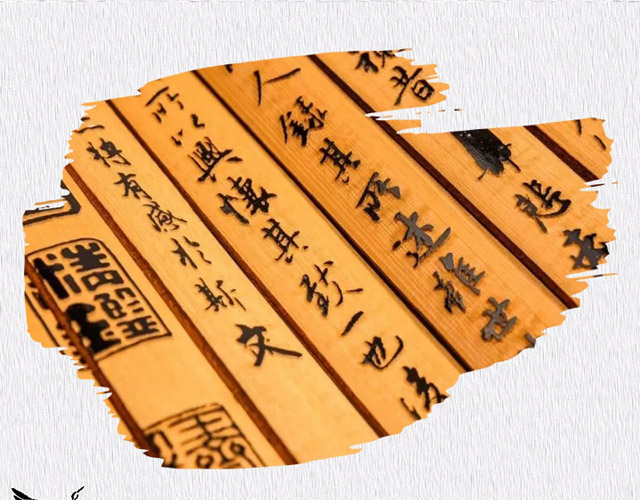 視昔悲夫
人録其所述雖世
所以興懷其致一也後
將有感於斯文